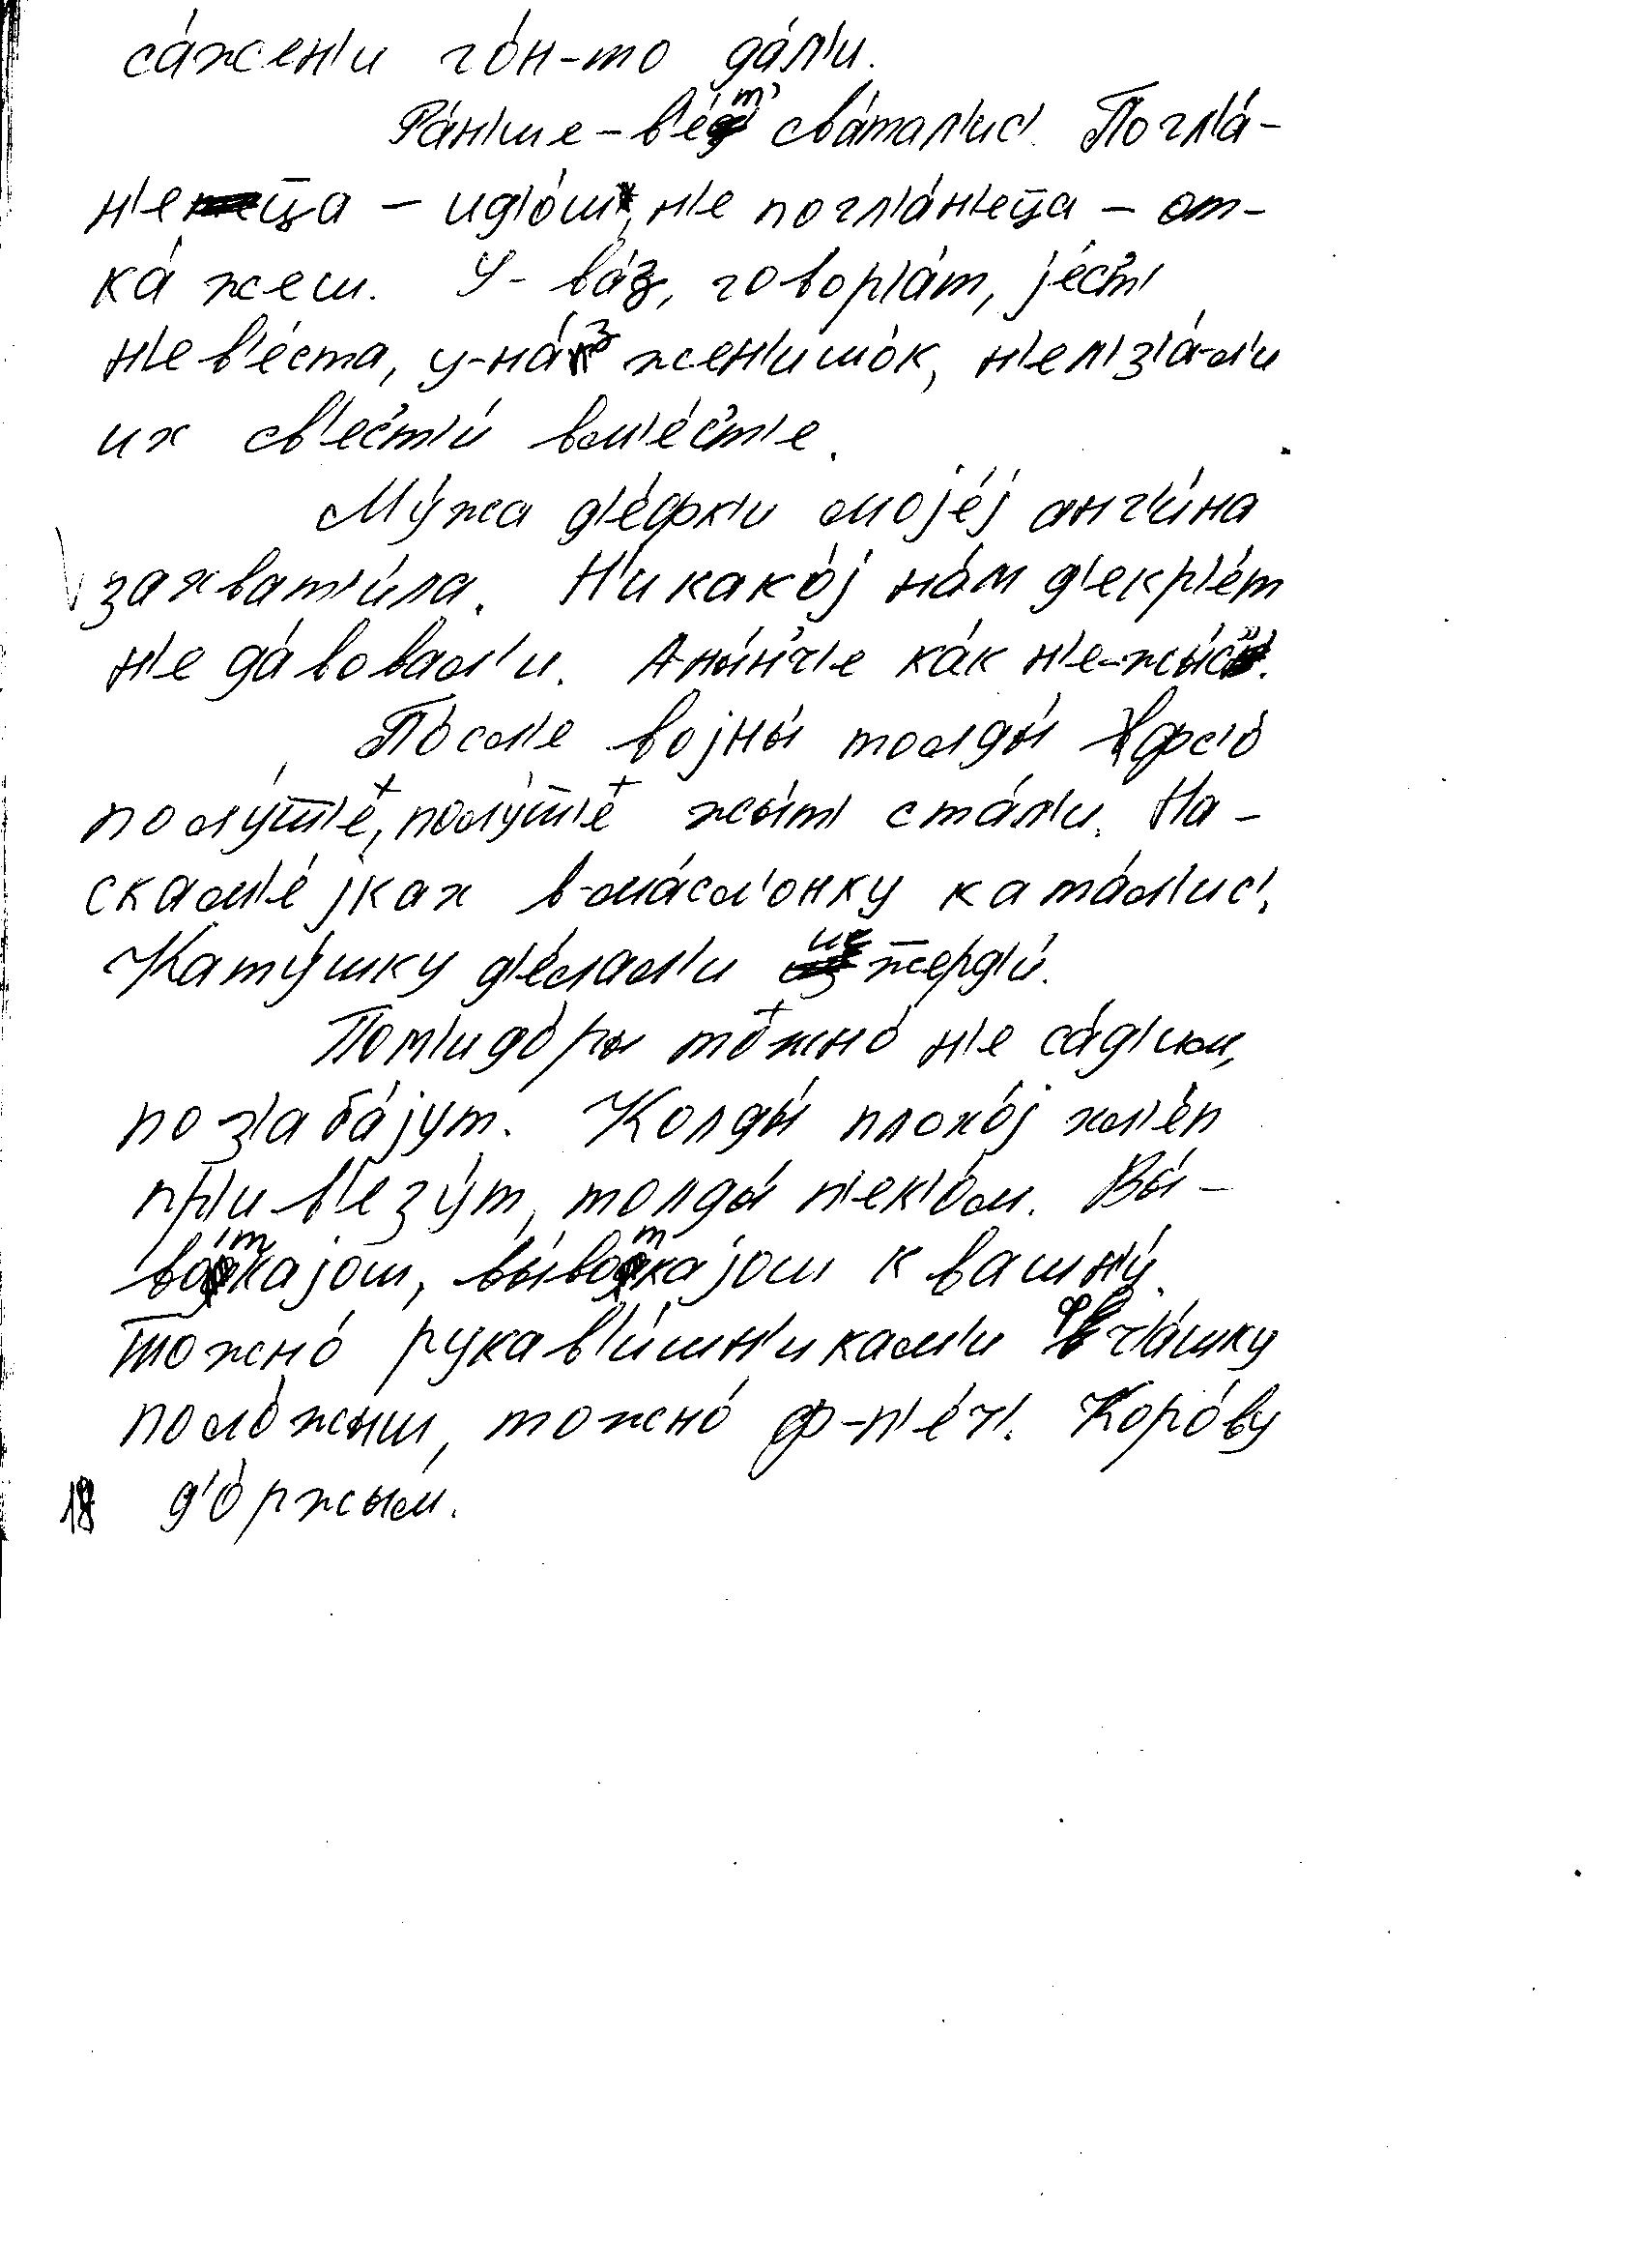 са́жен'и го́н-то да́л'и.
Ра́н'ше-в'е́т' сва́талис'. Погл'а́-
н'еца̄ – ид'о́ш, н'е погл'а́н'еца̄ – от-
ка́жеш. У-ва́з, говор'а́т, jе́с'т'
н'ев'е́ста, у-на́з жен'ишо́к, н'ел'з'а́-л'и
их св'ес'т'и́ вм'е́с'т'е.
Му́жа д'е́фк'и моjе́j анг'и́на
захват'и́ла. Н'икако́j на́м д'екр'е́т
н'е да́вовал'и. А ны́н'ч'е ка́к н'е-жы́с'.
По́сл'е воjны́ толды́ фс'о́
полу́т̄ш'е, полу́т̄ш'е жыт' ста́л'и. На-
скам'е́jках в-ма́сл'онку ката́л'ис'.
Кату́шку д'е́лал'и иж̄ерд'и́.
Пом'идо́ры то̂жно́ н'е са́д'им,
поз'аба́jут. Колды́ плохо́j хл'е́п
пр'ив'езу́т, толды́ п'ек'о́м. Вы́-
вот'каjош, вы́воткаjош квашн'у́.
Тожно́ рукав'и́шн'икам'и фч'а́шку
поло́жыш, тожно́ ф-п'е́ч'. Коро́ву
д'о́ржым.
18